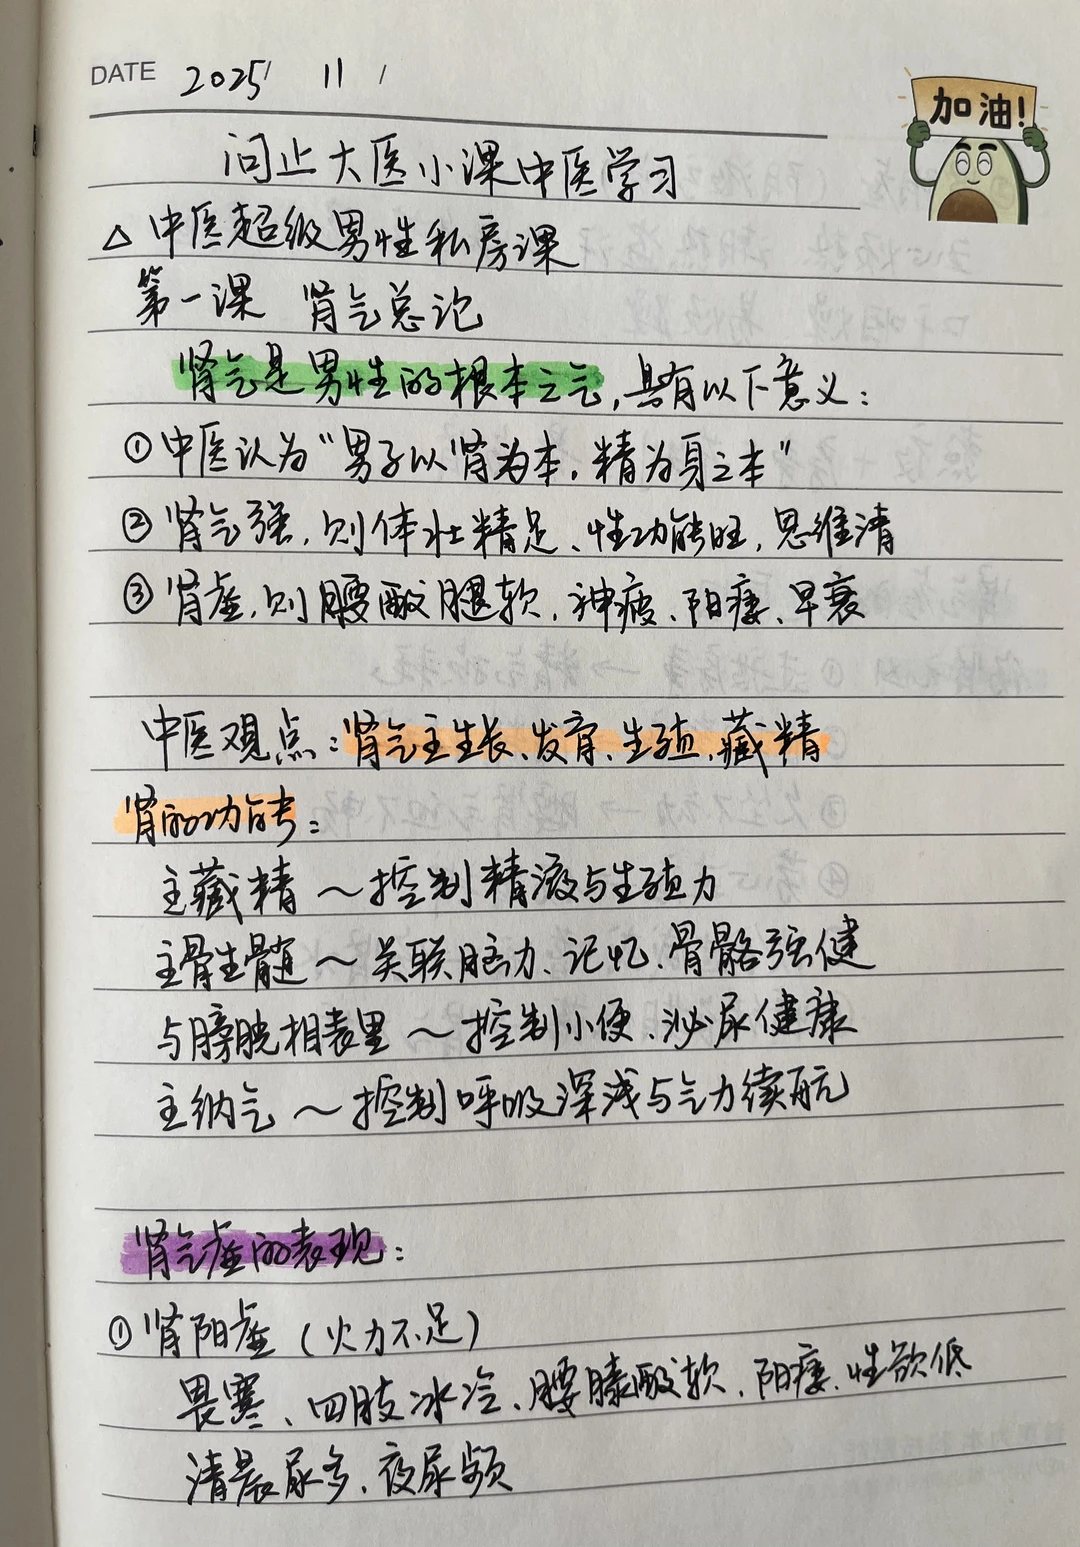 DATE 2025/ 11 /
加油!
问止大医小课中医学习
△ 中医超级男性私房课
第一课 肾气总论
肾气是男性的根本之气,具有以下意义:
①中医认为“男子以肾为本,精为身之本”
②肾气强,则体壮精足、性功能旺,思维清
③肾虚,则腰酸腿软,神疲、阳痿、早衰
中医观点:肾气主生长、发育、生殖、藏精
肾的功能:
主藏精～控制精液与生殖力
主骨生髓～关联脑力、记忆、骨骼强健
与膀胱相表里～控制小便、泌尿健康
主纳气～控制呼吸深浅与气力续航
肾气虚的表现:
①肾阳虚(火力不足)
畏寒、四肢冰冷、腰膝酸软、阳痿、性欲低
清晨尿多、夜尿频